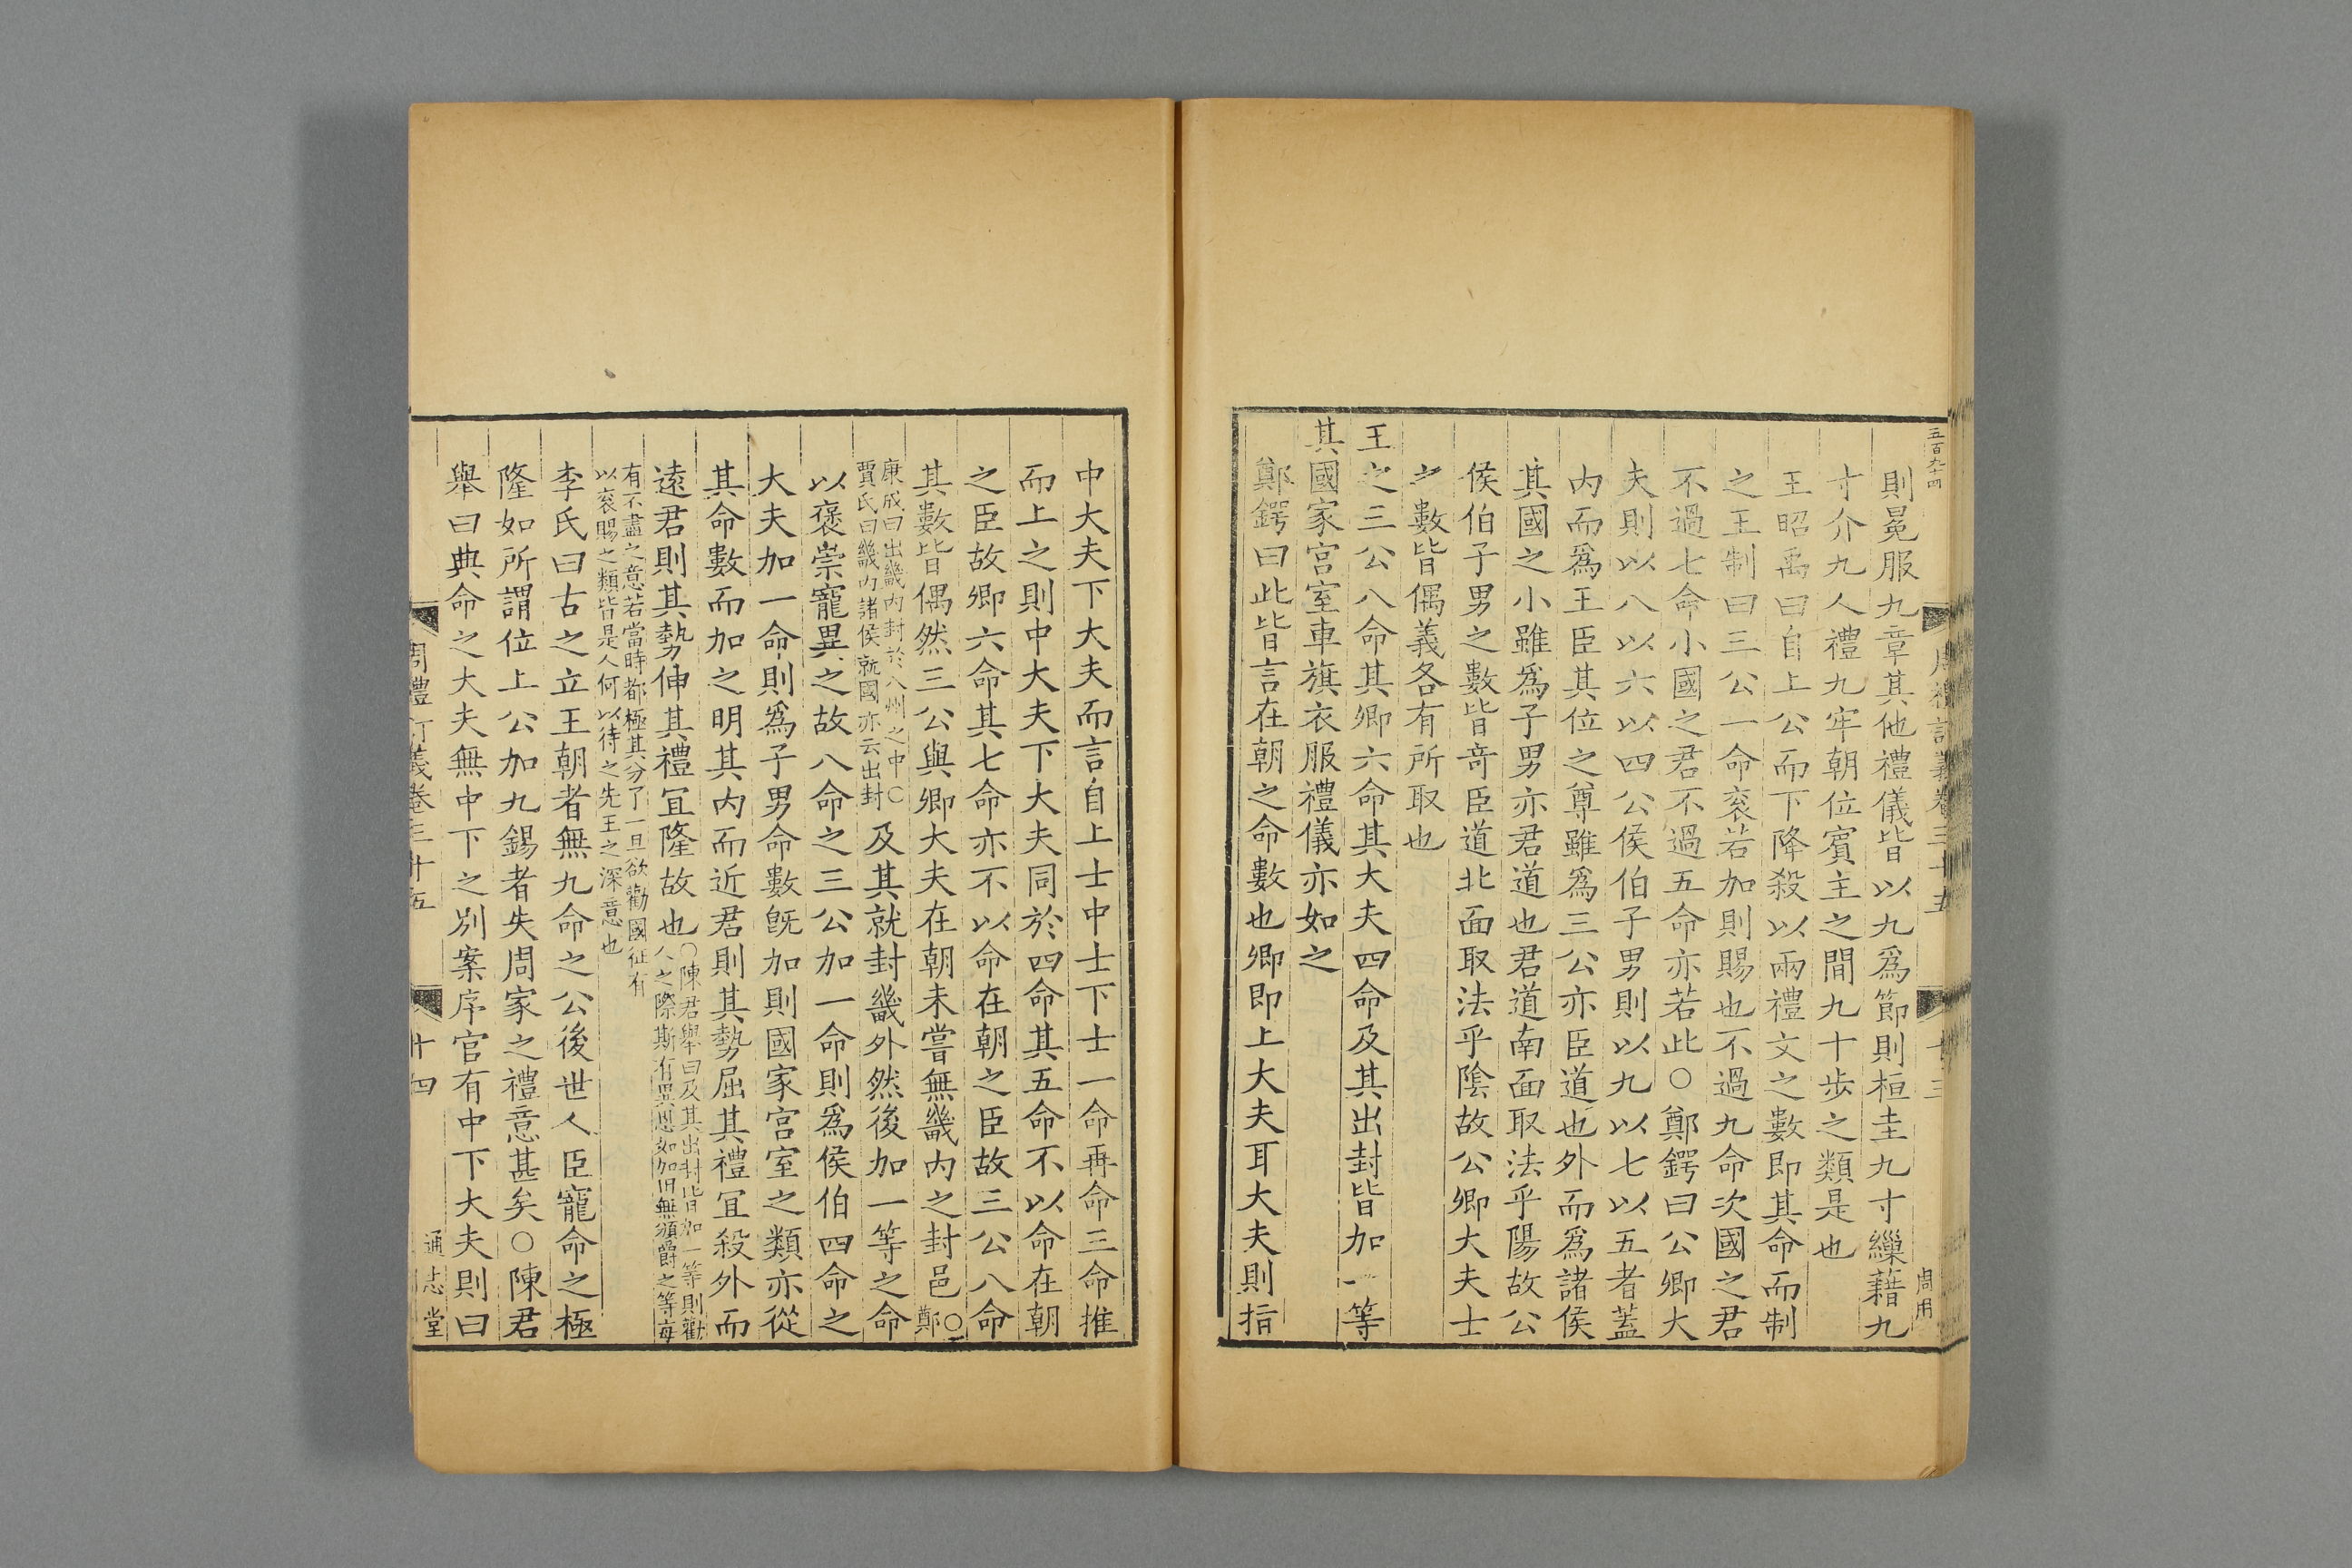 五百九十四
周禮訂義卷三十五
十三
周用
則冕服九章其他禮儀皆以九爲節則桓圭九寸繅藉九
寸介九人禮九牢朝位賓主之間九十步之類是也
王昭禹曰自上公而下降殺以兩禮文之數即其命而制
之王制曰三公一命衮若加則賜也不過九命次國之君
不過七命小國之君不過五命亦若此○鄭鍔曰公卿大
夫則以八以六以四公侯伯子男則以九以七以五者蓋
内而爲王臣其位之尊雖爲三公亦臣道也外而爲諸侯
其國之小雖爲子男亦君道也君道南面取法乎陽故公
侯伯子男之數皆竒臣道北面取法乎陰故公卿大夫士
之數皆偶義各有所取也
王之三公八命其卿六命其大夫四命及其出封皆加一等
其國家宫室車旗衣服禮儀亦如之
鄭鍔曰此皆言在朝之命數也卿即上大夫耳大夫則指
中大夫下大夫而言自上士中士下士一命再命三命推
而上之則中大夫下大夫同於四命其五命不以命在朝
之臣故卿六命其七命亦不以命在朝之臣故三公八命
其數皆偶然三公與卿大夫在朝未嘗無畿内之封邑○鄭
康成曰出畿内封於八州之中○
賈氏曰畿内諸侯就國亦云出封
及其就封畿外然後加一等之命
以褒崇寵異之故八命之三公加一命則爲侯伯四命之
大夫加一命則爲子男命數既加則國家宫室之類亦從
其命數而加之明其内而近君則其勢屈其禮宜殺外而
遠君則其勢伸其禮宜隆故也
○陳君舉曰及其出封皆加一等則勸
人之際斯有異恩如加田無頒爵之等每
有不盡之意若當時都極其分了一旦欲勸國征有
以衮賜之類皆是人何以待之先王之深意也
李氏曰古之立王朝者無九命之公後世人臣寵命之極
隆如所謂位上公加九錫者失周家之禮意甚矣○陳君
舉曰典命之大夫無中下之别案序官有中下大夫則曰
周禮訂義卷三十五
十四
通志堂